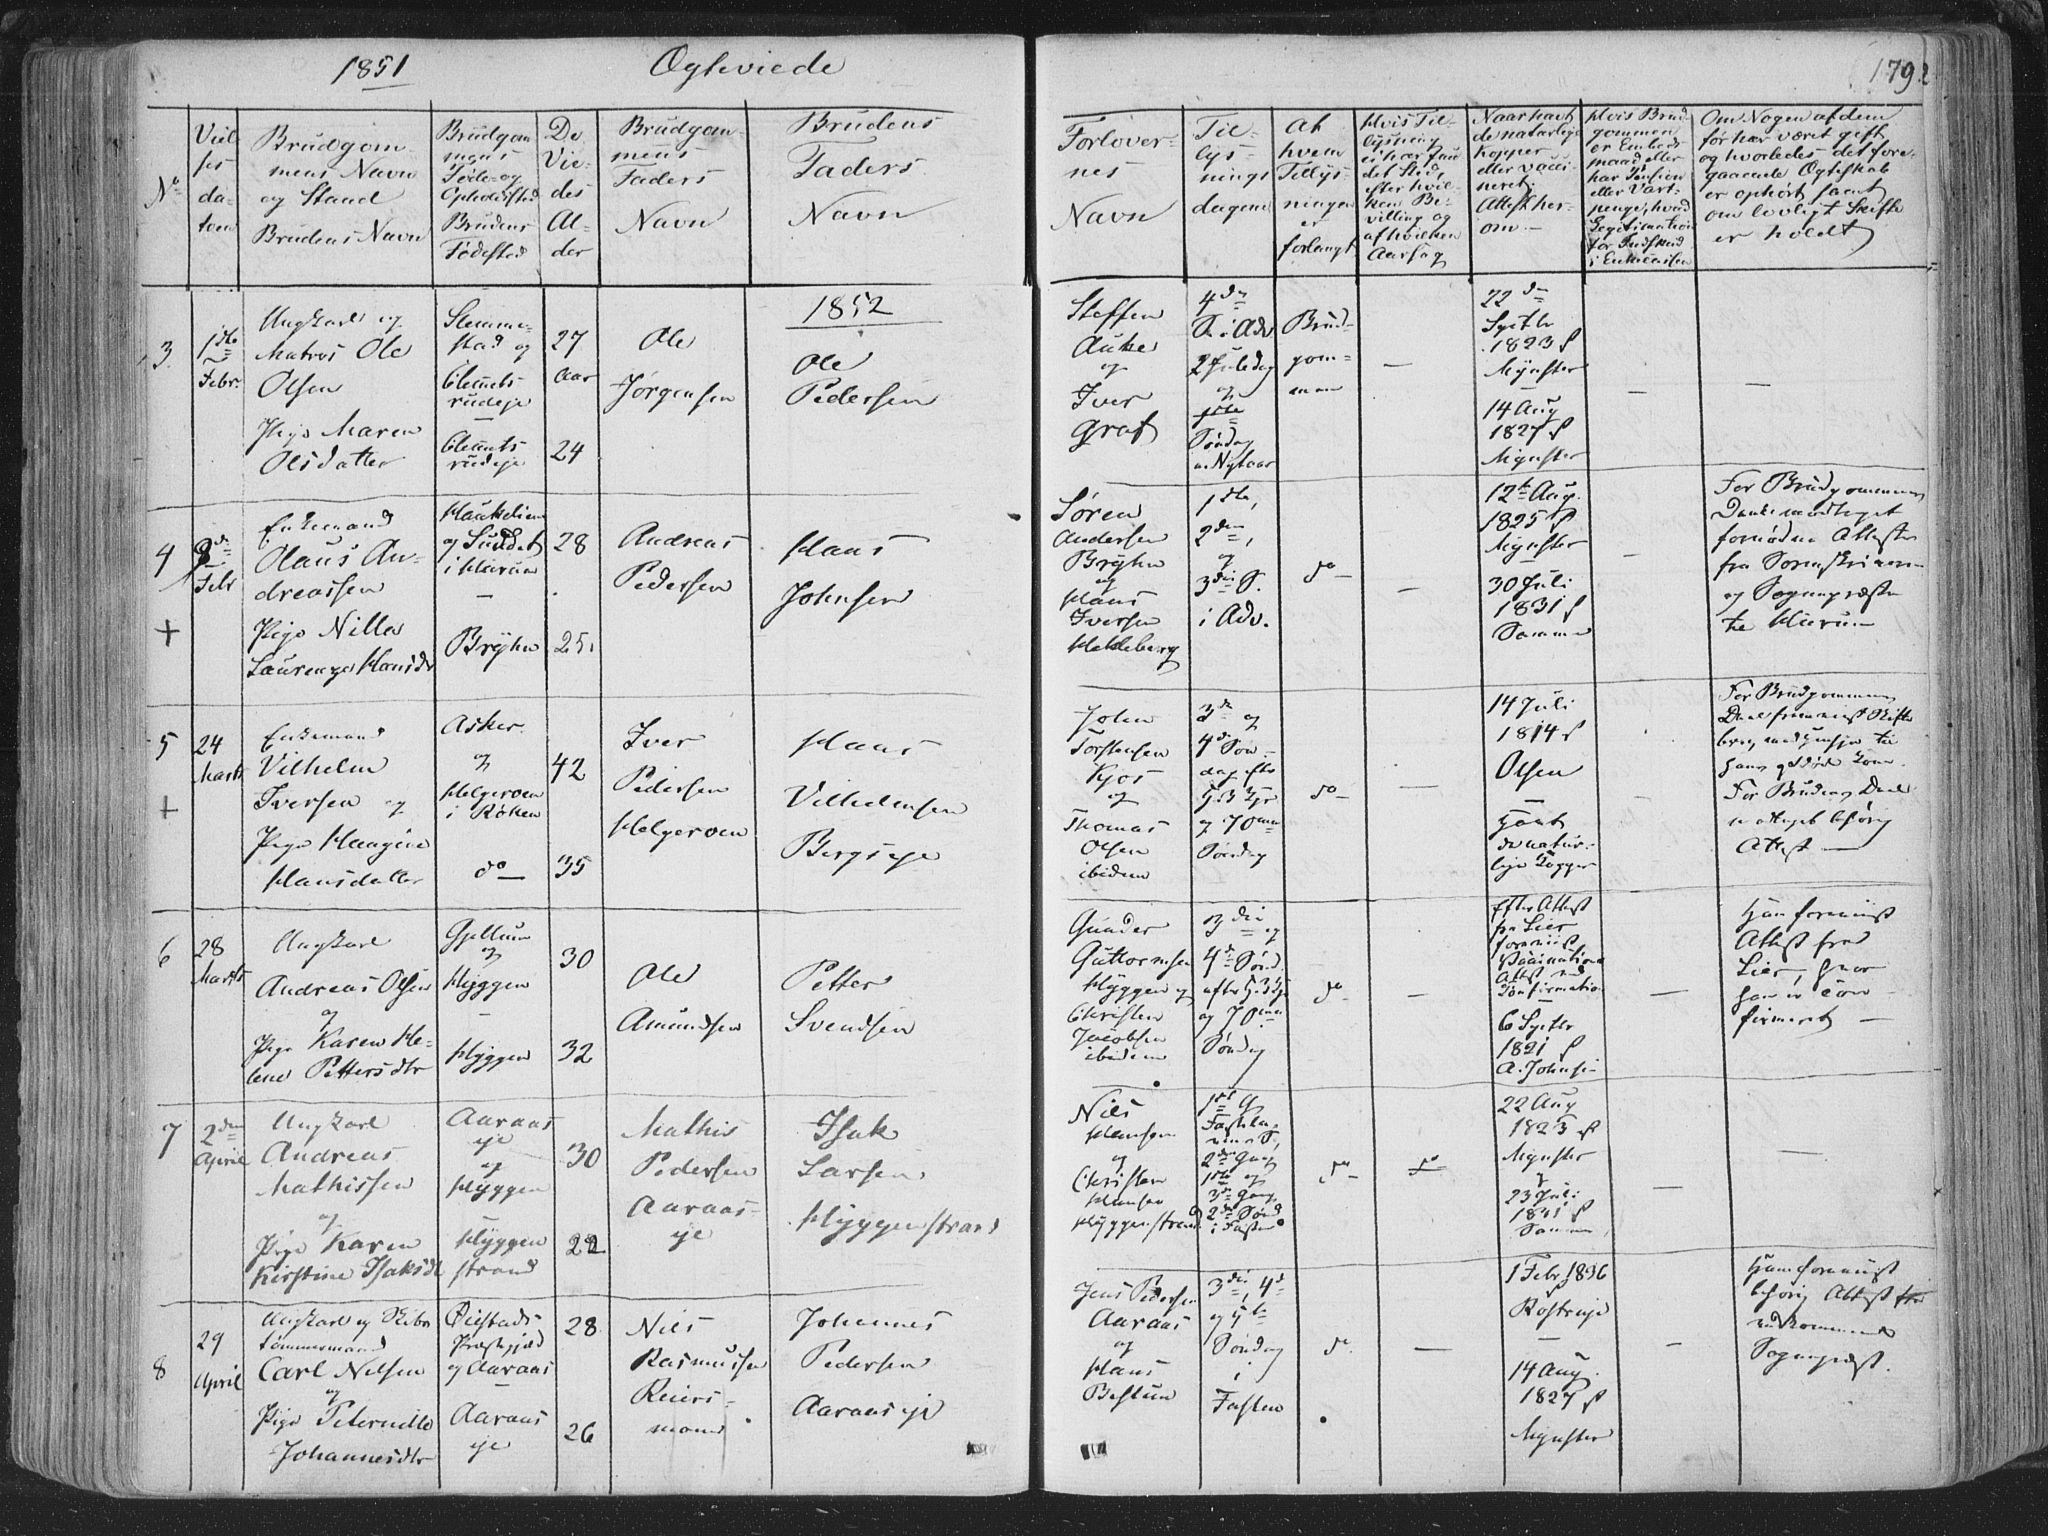 1851
Ogteviede
1792
No
Viel-
ses
da-
tum
Brudgom-
mens Navn
og Stand
Brudens Navn
Brudgom-
mens
Føde- og
Opholdssted
Brudens
Fødested
De
Vie-
des
Al-
der
Brudgom-
mens
Faders
Navn
Brudens
Faders
Navn
Forlover-
nes
Navn
Til-
lys-
nings
dagene
Af
hvem
Tillys-
ningen
er
forlangt
Hvis Til-
lysning
ei har fun-
det Sted,
efter hvil-
ken Be-
villing og
af hvilken
Aarsag
Naar havt
de naturlige
Kopper
eller vacci-
neret.
Attest her-
om.-
Hvis Brud-
gommen
er Embeds
mand eller
har Pension
eller Vart-
penge, hvad
Legitimation
for Indskud
i Enkecassen
Om Nogen af dem
før har været gift
og hvorledes det fore-
gaaende Ægteskab
er ophørt samt
om lovligt Skifte
er holdt
1852
3.
1ste
Febr.
Ungkarl og
Matros Ole
Olsen
Pige Maren
Olsdatter
Slemme-
stad og
Clemets-
rudeje
Clemets
rudeje
27
Aar
24
Ole
Jørgensen
Ole
Pedersen
Steffen
Auke
og
Iver
Graf
4de
S. i Adv
2 Juledag
og
1ste
Søndag
e. Nytaar
Brud-
gom-
men
—
22de
Septbr
1823 af
Mynster
14 Aug
1827 af
Mynster
—
—
4
+
Febr
Enkemand
Olaus An-
dreassen
Pige Nilla
Laurenze Hansdr
og Sundet
Bryhn
28
25.
Andreas
Pedersen
Hans
Johnsen
Søren
Andersen
Bryhn
og
Hans
Iversen
1ste,
2den,
og
3die S.
i Adv.
do
—
12te Aug.
1825 af
Mynster
30 Juli
1831 af
Samme
—
For Brudgommen
fornødne Attester
fra Sorenskriveren
og Sognepræsten
til Hurum
5
+
24
Marts
Enkemand
Vilhelm
Iversen og
Pige Haagine
Hansdatter
Asker
og
Helgeroen
i Røken
do
42
35
Iver
Pedersen
Helgeroen
Hans
Vilhelmsen
Bergseje
John
Torstensen
Kjos
og
Thomas
Olsen
ibidem
3die og
4de Søn-
dag efter
H. 3 Kgr
og 70mæ
Søndag
do
—
14 Juli
1814 af
Olsen
havt
de natur-
lige Kopper
For Brudgommens
For Brudens Deel
Attest —
6
28
Marts
Ungkarl
Andreas Olsen
og
Pige Karen He-
lene Pettersdtr
Gjellum
og
Hyggen
Hyggen
30
32
Ole
Amundsen
Petter
Svendsen
Gunder
Guttormsen
Hyggen og
Christen
Jacobsen
ibidem
3die og
4de Sønd.
efter H. 3 Kgr
og 70mæ
Søndag
do
—
Efter Attest
fra Lier
forevist
Vaccinations
Attest ved
Confirmation
6 Septbr
1821 af
A. Johnsen
—
Han forevist
Attest fra
Lier, hvor
han er con-
firmeret —
7
2den
April
Ungkarl
Andreas
Mathissen
og
Pige Karen
Kirstine Isaksdr
Aaraas
eje
og
Hyggen
Hyggen
strand
30
22
Mathis
Pedersen
Aaraas-
eje
Isak
Larsen
Hyggenstrand
Niels
Hansen
og
Christen
Hansen
Hyggenstrand
1ste G.
Fastela-
vens S,
2den Gang
1ste og
3de Gang
2den Sønd
i Fasten
do
do
22 Aug
1823 af
Mynster
23 Juli
1831 af
Samme
—
—
8
29
April
Ungkarl og Skibs
tømmermand
Carl Nilsen
og
Pige Peternille
Johannesdtr
Øiestads
Præstegjeld
og Aaraas
Aaraas
eje
28
26
Niels
Rasmussen
Reiers-
moen
Johannes
Pedersen
Aaraaseje
Jens Pedersen
Aaraas
og
Hans
Bestun
3die, 4de
og 5te
Søndag
i
Fasten
do
—
1 Febr 1836
Rostrup
14 Aug.
1827 af
Mynster
—
Han forevist
behørig Attest fra
vedkommende
Sognepræst.